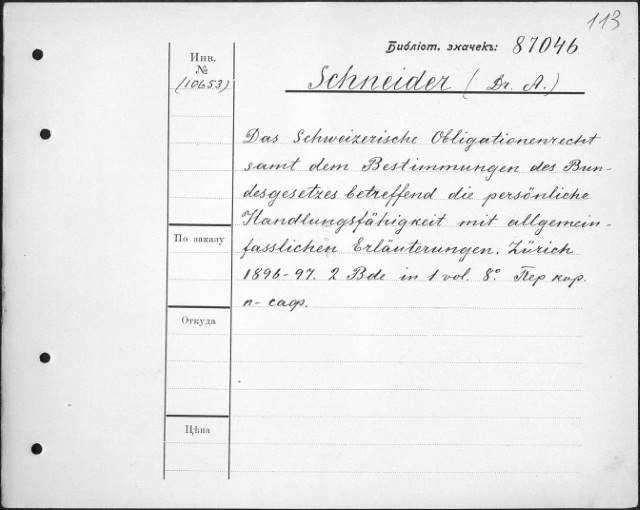 113
Библіот. значекъ: 87046
Инв.
№
(10653)
Schneider (Dr. A.)
Das Schweizerische Obligationenrecht
samt dem Bestimmungen des Bun-
desgesetzes betreffend die persönliche
Handlungsfähigkeit mit allgemein-
fasslichen Erläuterungen. Zürich
1896-97. 2 Bde in 1 vol. 8°. Пер кор.
п- саф.
По заказу
Откуда
Цѣна